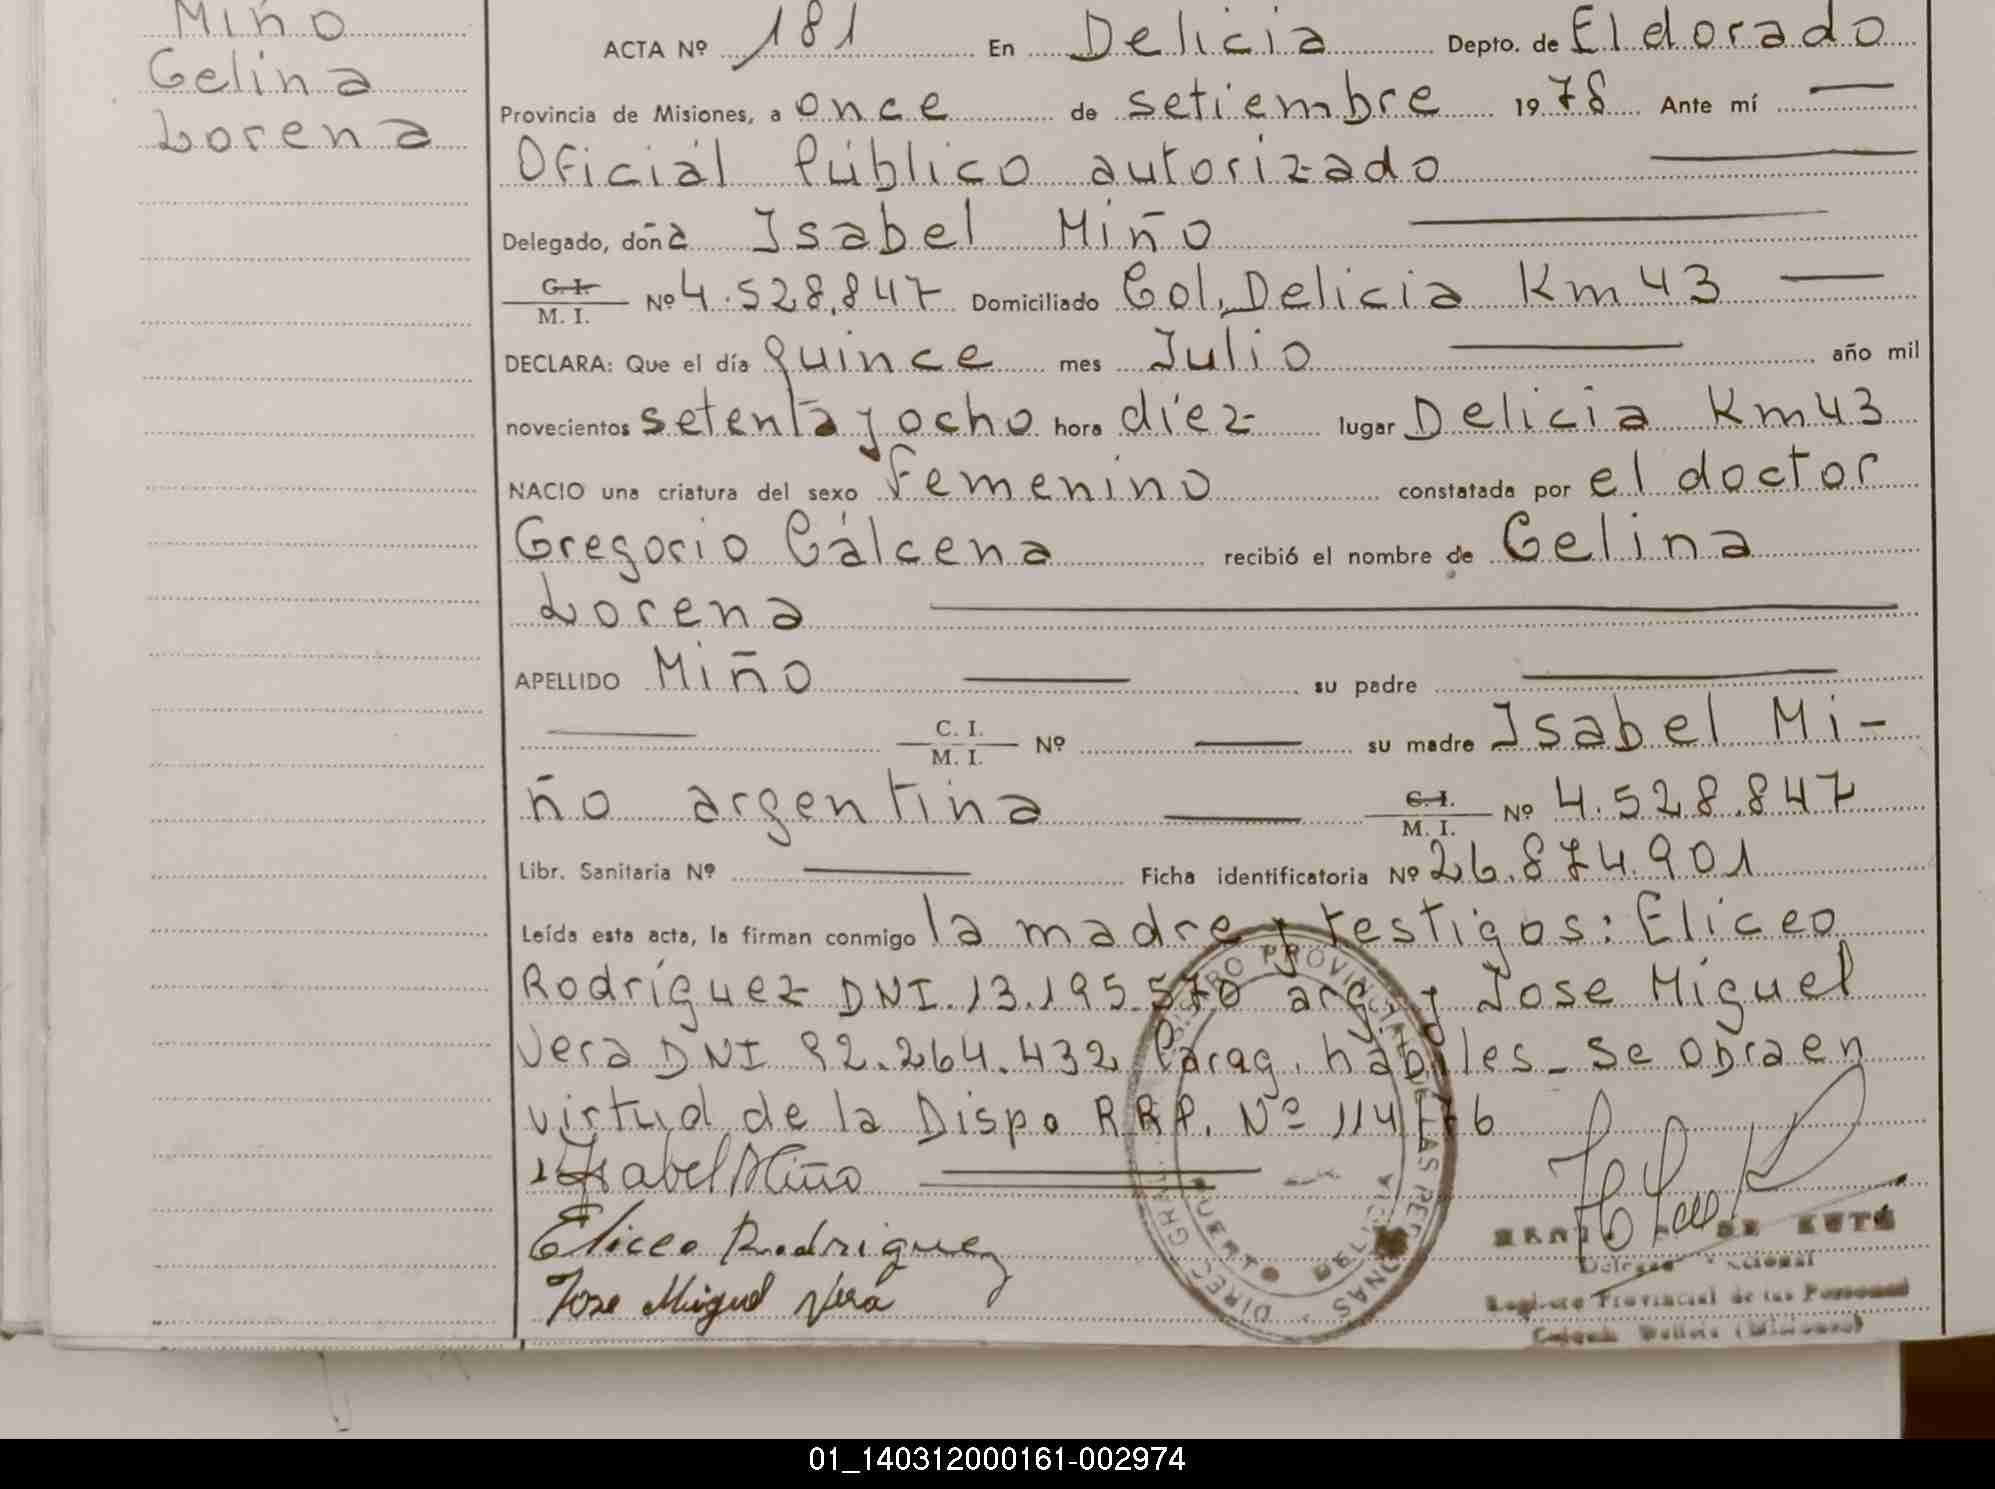 Miño
Celina
Lorena
ACTA Nº 181 En Delicia Depto. de Eldorado
Provincia de Misiones, a once de setiembre 1978 Ante mí
Oficial Público autorizado
Delegado, doña Isabel Miño
C. I. / M. I. Nº 4.528.847 Domiciliado Col. Delicia Km 43
DECLARA: Que el día quince mes Julio año mil
novecientos setenta y ocho hora diez lugar Delicia Km 43
NACIO una criatura del sexo femenino constatada por el doctor
Gregorio Cálcena recibió el nombre de Celina
Lorena
APELLIDO Miño su padre
C. I. / M. I. Nº su madre Isabel Mi-
ño argentina C. I. / M. I. Nº 4.528.847
Libr. Sanitaria Nº Ficha identificatoria Nº 26.874.901
Leída esta acta, la firman conmigo la madre y testigos: Eliceo
Rodríguez DNI. 13.195.570 arg. y Jose Miguel
Vera DNI 92.264.432 Parag. hábiles_ se obra en
virtud de la Dispo R.R.P. Nº 114/76
Isabel Miño
Eliceo Rodriguez
Jose Miguel Vera
DE KUTE
Registro Provincial de las Personas
(Misiones)
01_140312000161-002974